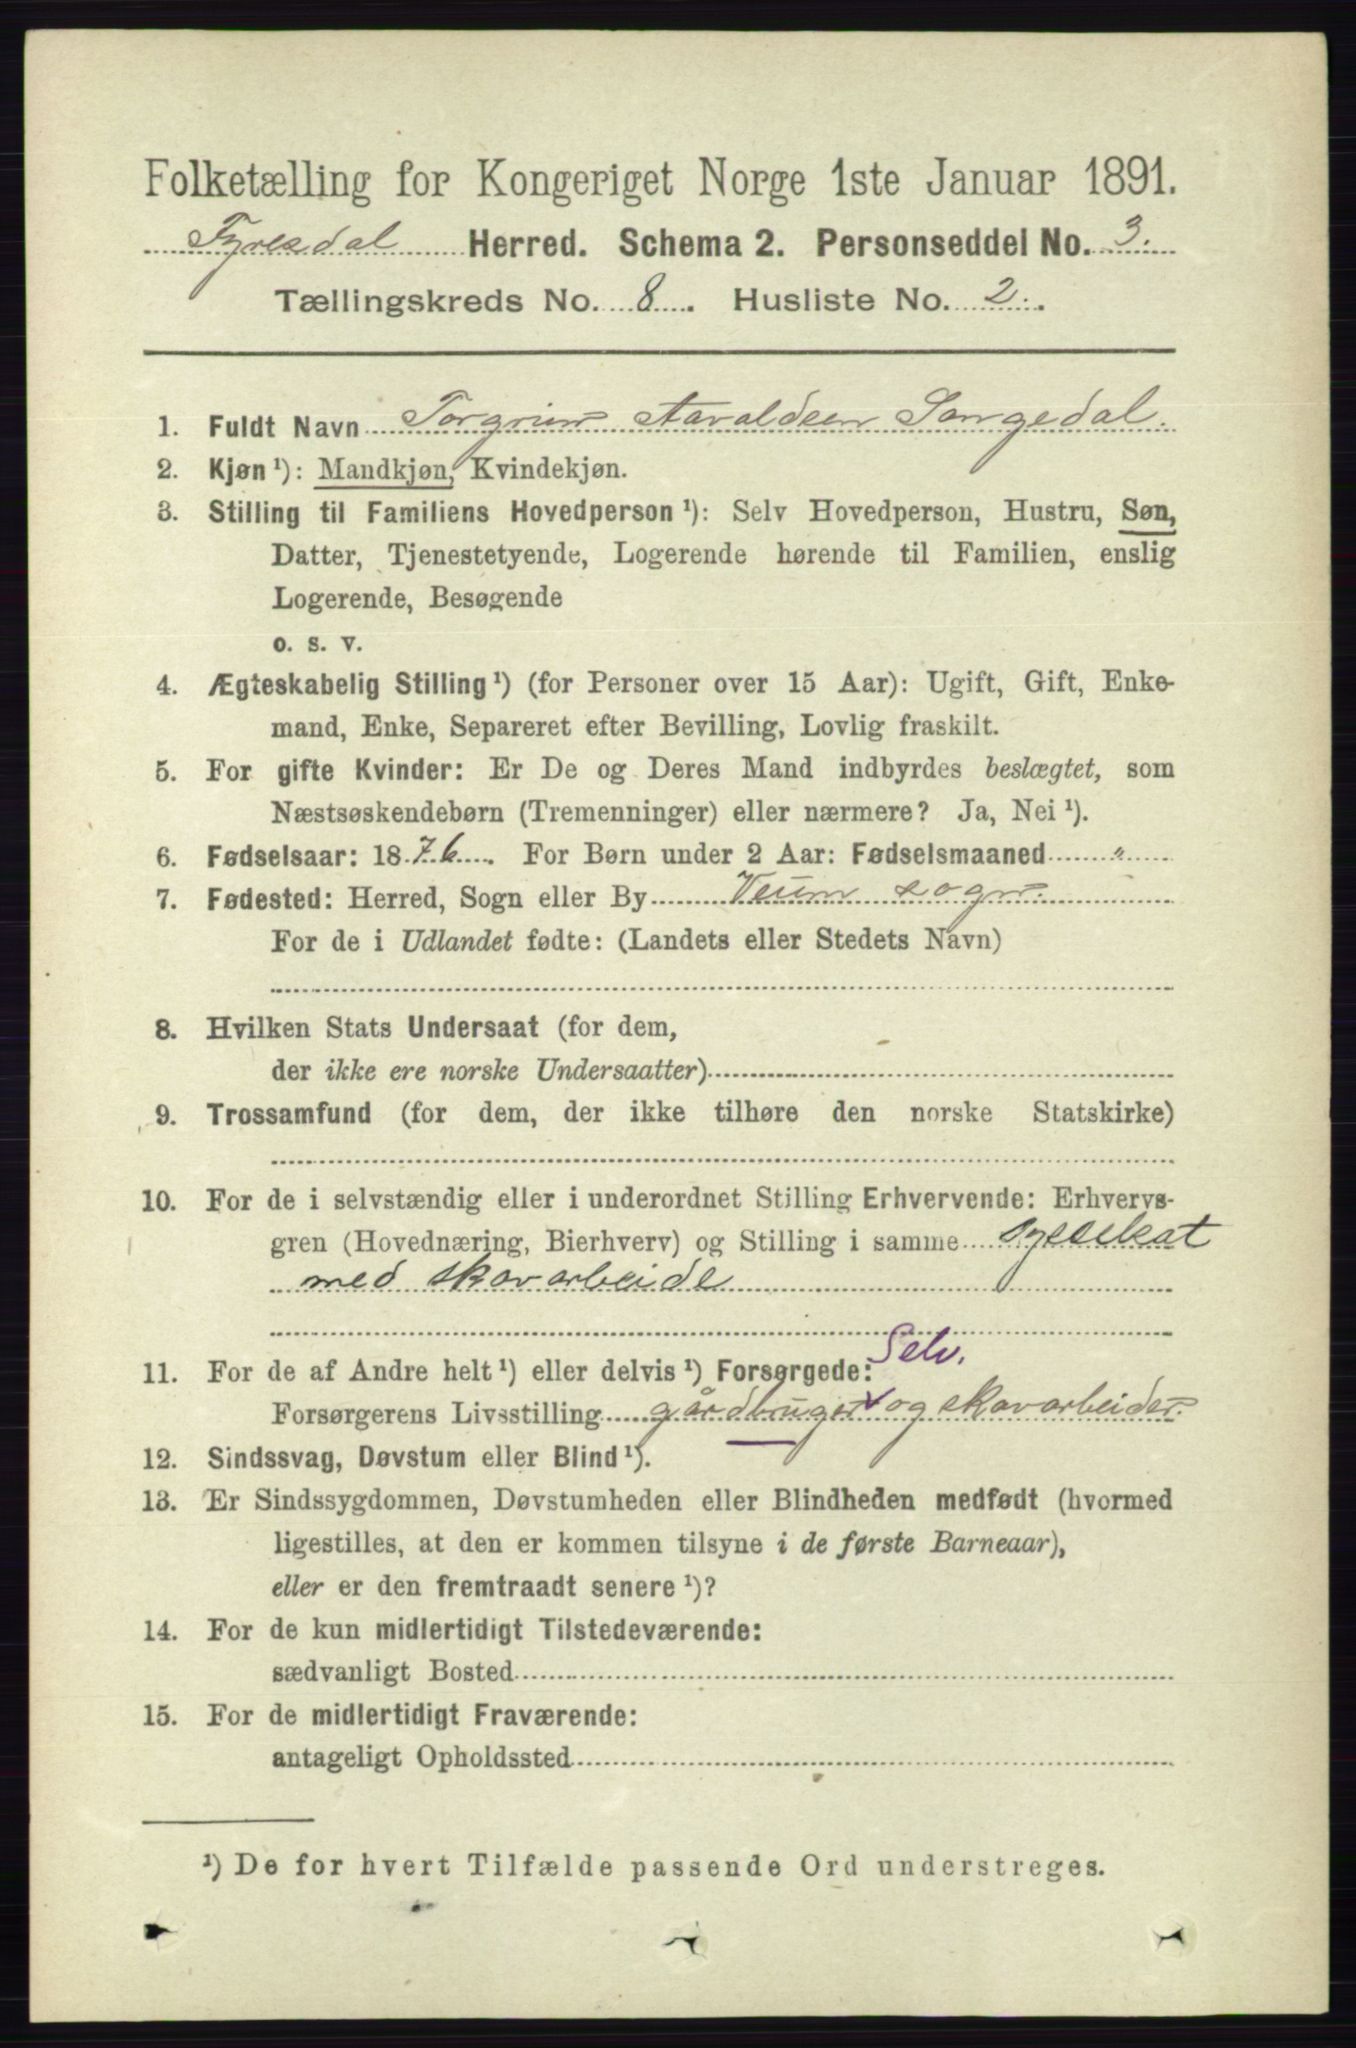 Folketælling for Kongeriget Norge 1ste Januar 1891.
Fyresdal Herred. Schema 2. Personseddel No. 3.
Tællingskreds No. 8. Husliste No. 2.
1. Fuldt Navn Torgrim Aavaldsen Songedal.
2. Kjøn ¹): Mandkjøn, Kvindekjøn.
3. Stilling til Familiens Hovedperson ¹): Selv Hovedperson, Hustru, Søn,
Datter, Tjenestetyende, Logerende hørende til Familien, enslig
Logerende, Besøgende
o. s. v.
4. Ægteskabelig Stilling ¹) (for Personer over 15 Aar): Ugift, Gift, Enke-
mand, Enke, Separeret efter Bevilling, Lovlig fraskilt.
5. For gifte Kvinder: Er De og Deres Mand indbyrdes beslægtet, som
Næstsøskendebørn (Tremenninger) eller nærmere? Ja, Nei ¹).
6. Fødselsaar: 1876. For Børn under 2 Aar: Fødselsmaaned "
7. Fødested: Herred, Sogn eller By Veum sogn.
For de i Udlandet fødte: (Landets eller Stedets Navn)
8. Hvilken Stats Undersaat (for dem,
der ikke ere norske Undersaatter)
9. Trossamfund (for dem, der ikke tilhøre den norske Statskirke)
10. For de i selvstændig eller i underordnet Stilling Erhvervende: Erhvervs-
gren (Hovednæring, Bierhverv) og Stilling i samme sysselsat
med skovarbeide
11. For de af Andre helt ¹) eller delvis ¹) Forsørgede: Selv.
Forsørgerens Livsstilling gårdbruger og skovarbeider.
12. Sindssvag, Døvstum eller Blind ¹).
13. Er Sindssygdommen, Døvstumheden eller Blindheden medfødt (hvormed
ligestilles, at den er kommen tilsyne i de første Barneaar),
eller er den fremtraadt senere ¹)?
14. For de kun midlertidigt Tilstedeværende:
sædvanligt Bosted
15. For de midlertidigt Fraværende:
antageligt Opholdssted
¹) De for hvert Tilfælde passende Ord understreges.